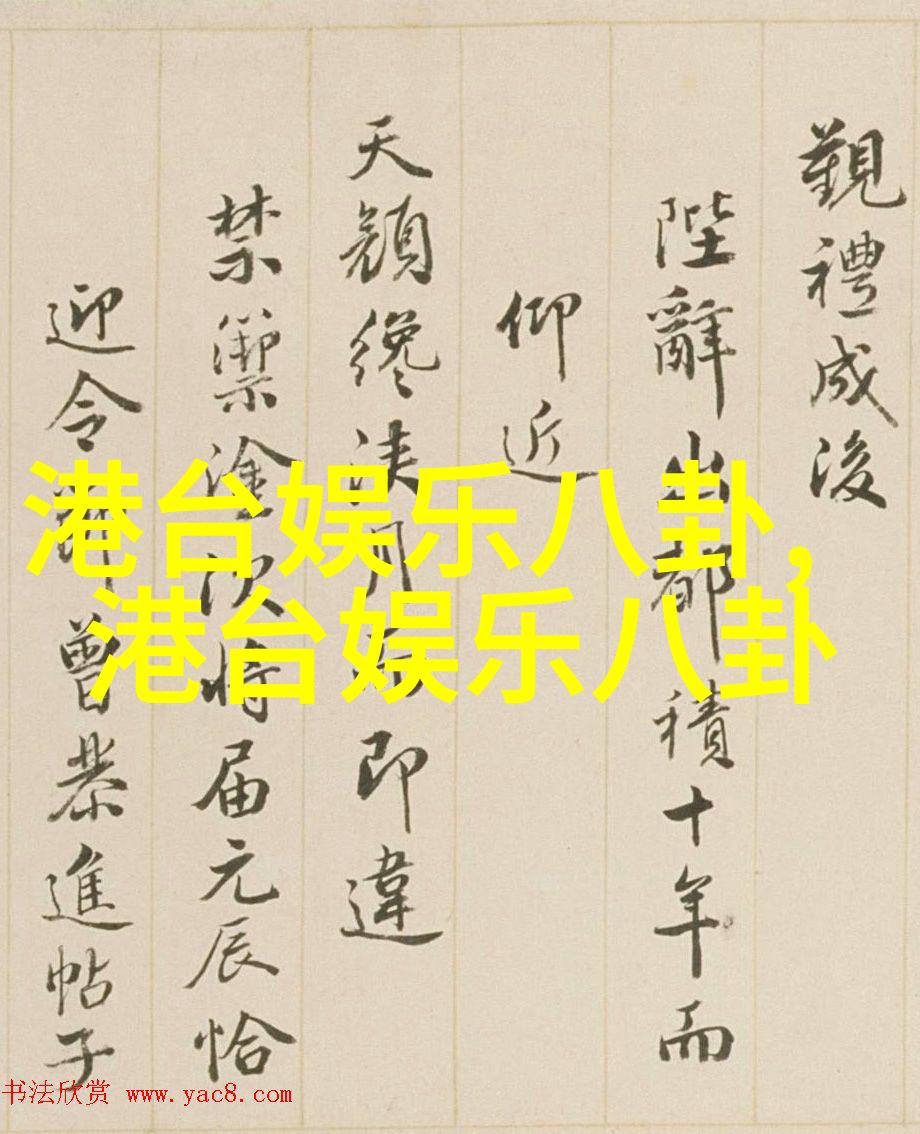 覲禮成後
陛辭出都積十年而
仰近
天顔纔浹月而即違
禁籞塗次將届元辰恰
迎令節曾恭進帖子
港台娱乐八卦,
港台娱乐八卦
书法欣赏 www.yac8.com